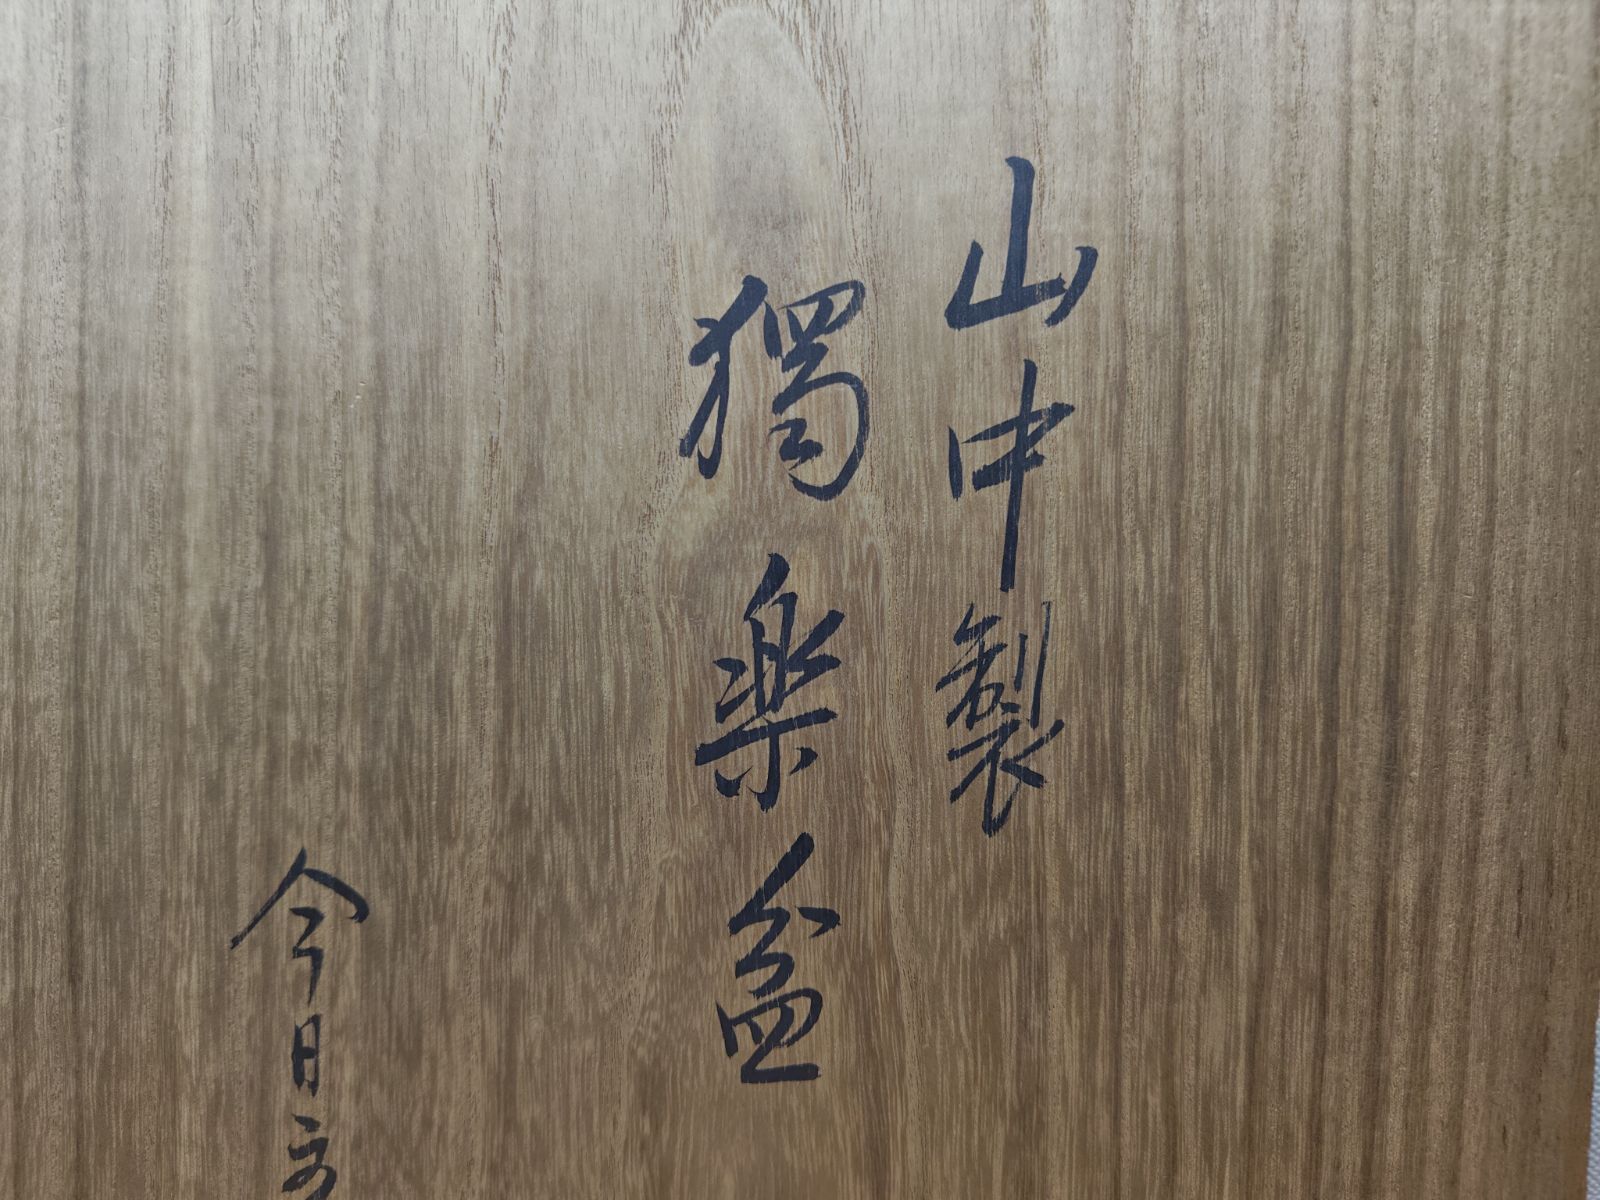 山中製
獨楽盆
今日